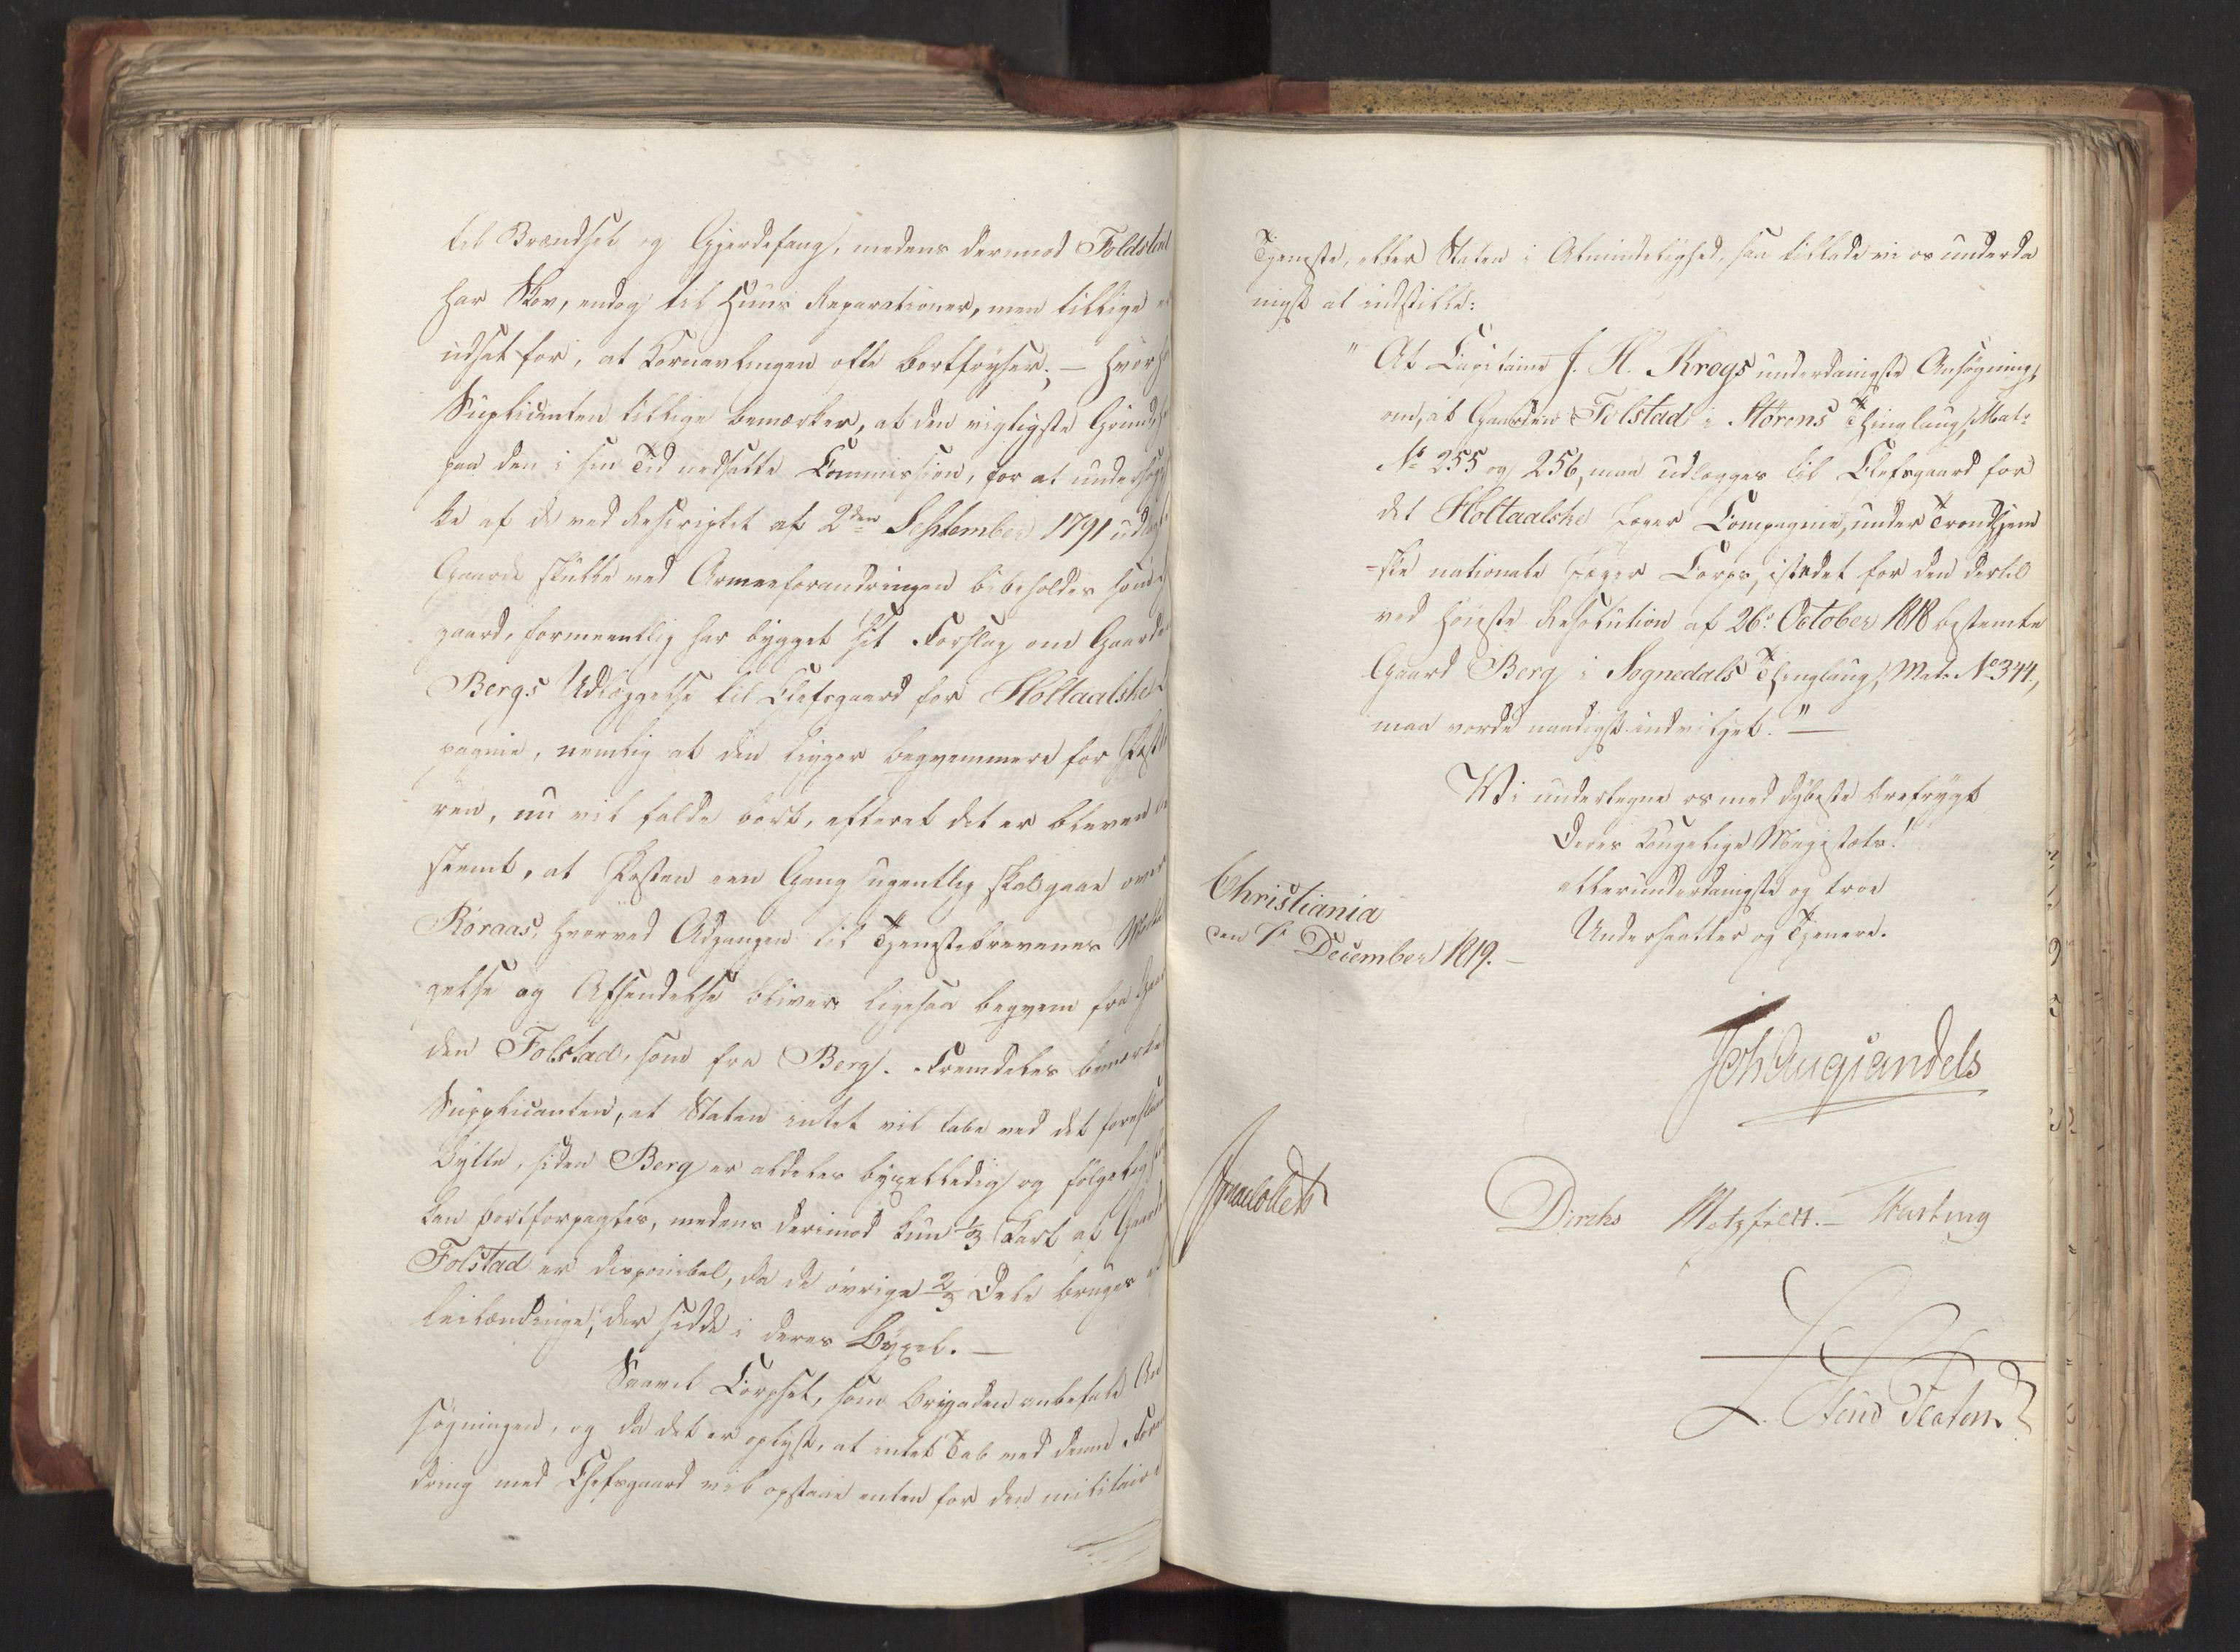 til Brændsel og Gjerdefang, medens derimod Foldstad
har Skov, endog til Huus Reparationer, men tillige er
udsat for, at Kornavlingen ofte bortfryser; — hvorhos
Suplicanten tillige bemærker, at den vigtigste Grund,
paa den i sin Tid nedsatte Commission, for at undersøge
ke af de ved Rescriptet af 2den September 1791 udlagte
Gaarde skulle ved Armeeforandringen bibeholdes som
gaard, formeentlig har bygget sit Forslag om Gaarden
Bergs Udlæggelse til Chefsgaard for Holtaalske
pagnie, nemlig at den ligger beqvemmere for
ren, nu vil falde bort, efterat det er bleven be
stemt, at Posten een Gang ugentlig skal gaae over
Röraas, hvorved Adgangen til Tjenestebrevenes Modta
gelse og Afsendelse bliver ligesaa beqvem fra Gaar
den Folstad, som fra Berg. Fremdeles bemærker
Supplicanten, at Staten intet vil tabe ved det foreslaaede
Bytte, siden Berg er aldeles byxelledig og følgelig
kan bortforpagtes, medens derimod kun 1/3 Part af Gaarden
Folstad er disponibel, da de øvrige 2/3 Dele bruges af
Leilændinge, der sidde i deres Byxel. —
Saavel Corpset, som Brigaden anbefale An
søgningen, og da det er oplyst, at intet Tab ved denne Foran
dring med Chefsgaard vil opstaae enten for den militaire
Tjeneste, eller Staten i Almindelighed, saa tillade vi os underda
nigst at indstille:
"At Capitaine J. H. Krogs underdanigste Ansøgning,
om, at Gaarden Folstad i Störens Thinglaug, Matr
No 255 og 256, maa udlægges til Chefsgaard for
det Holtaalske Jæger Compagnie, under Trondhjem
-ske nationale Jæger Corps, istedet for den dertil
ved høieste Resolution af 26de October 1818 bestemte
Gaard Berg i Sognedals Thinglaug, Mat. No 344,
maa vorde naadigst indvilget." —
Vi undertegne os med dybeste Ærefrygt
Deres Kongelige Majestæts!
allerunderdanigste og troe
Undersaatter og Tjenere.
Christiania
den 1e December 1819. —
Joh Aug Sandels
Diriks Motzfeldt. — Fasting